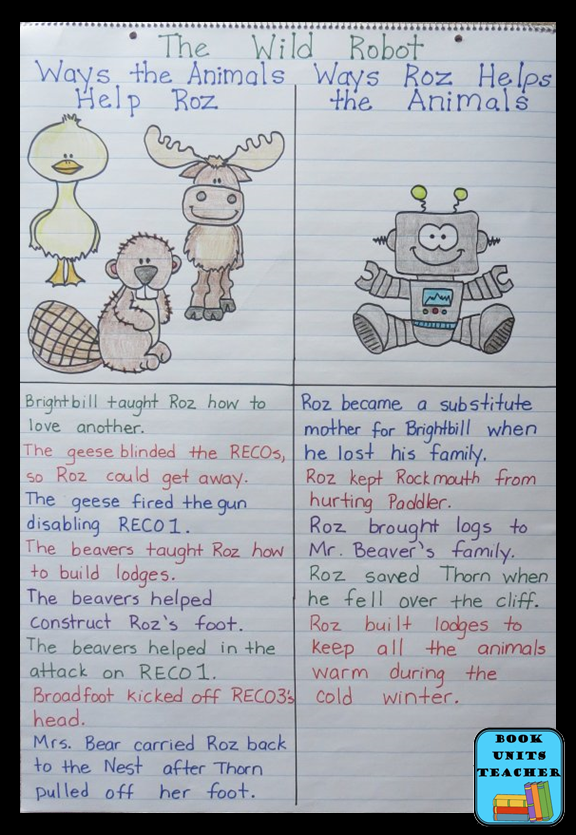 The Wild Robot
Ways the Animals
Help Roz
Brightbill taught Roz how to
love another.
The geese blinded the RECOs,
so Roz could get away.
The geese fired the gun
disabling RECO1.
The beavers taught Roz how
to build lodges.
The beavers helped
construct Roz's foot.
The beavers helped in the
attack on RECO1.
Broadfoot kicked off RECO3's
head.
Mrs. Bear carried Roz back
to the Nest after Thorn
pulled off her foot.
Ways Roz Helps
the Animals
Roz became a substitute
mother for Brightbill when
he lost his family.
Roz kept Rockmouth from
hurting Paddler.
Roz brought logs to
Mr. Beaver's family.
Roz saved Thorn when
he fell over the cliff.
Roz built lodges to
keep all the animals
warm during the
cold winter.
BOOK
UNITS
TEACHER